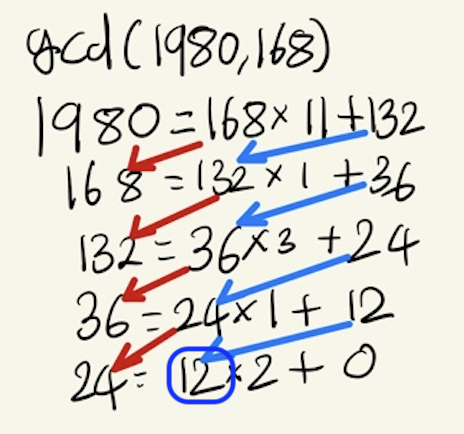 gcd(1980,168)
1980=168×11+132
168=132×1+36
132=36×3+24
36=24×1+12
24=12×2+0